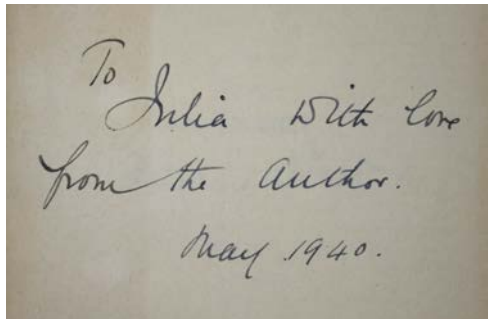 To
Julia with love
from the Author.
May 1940.